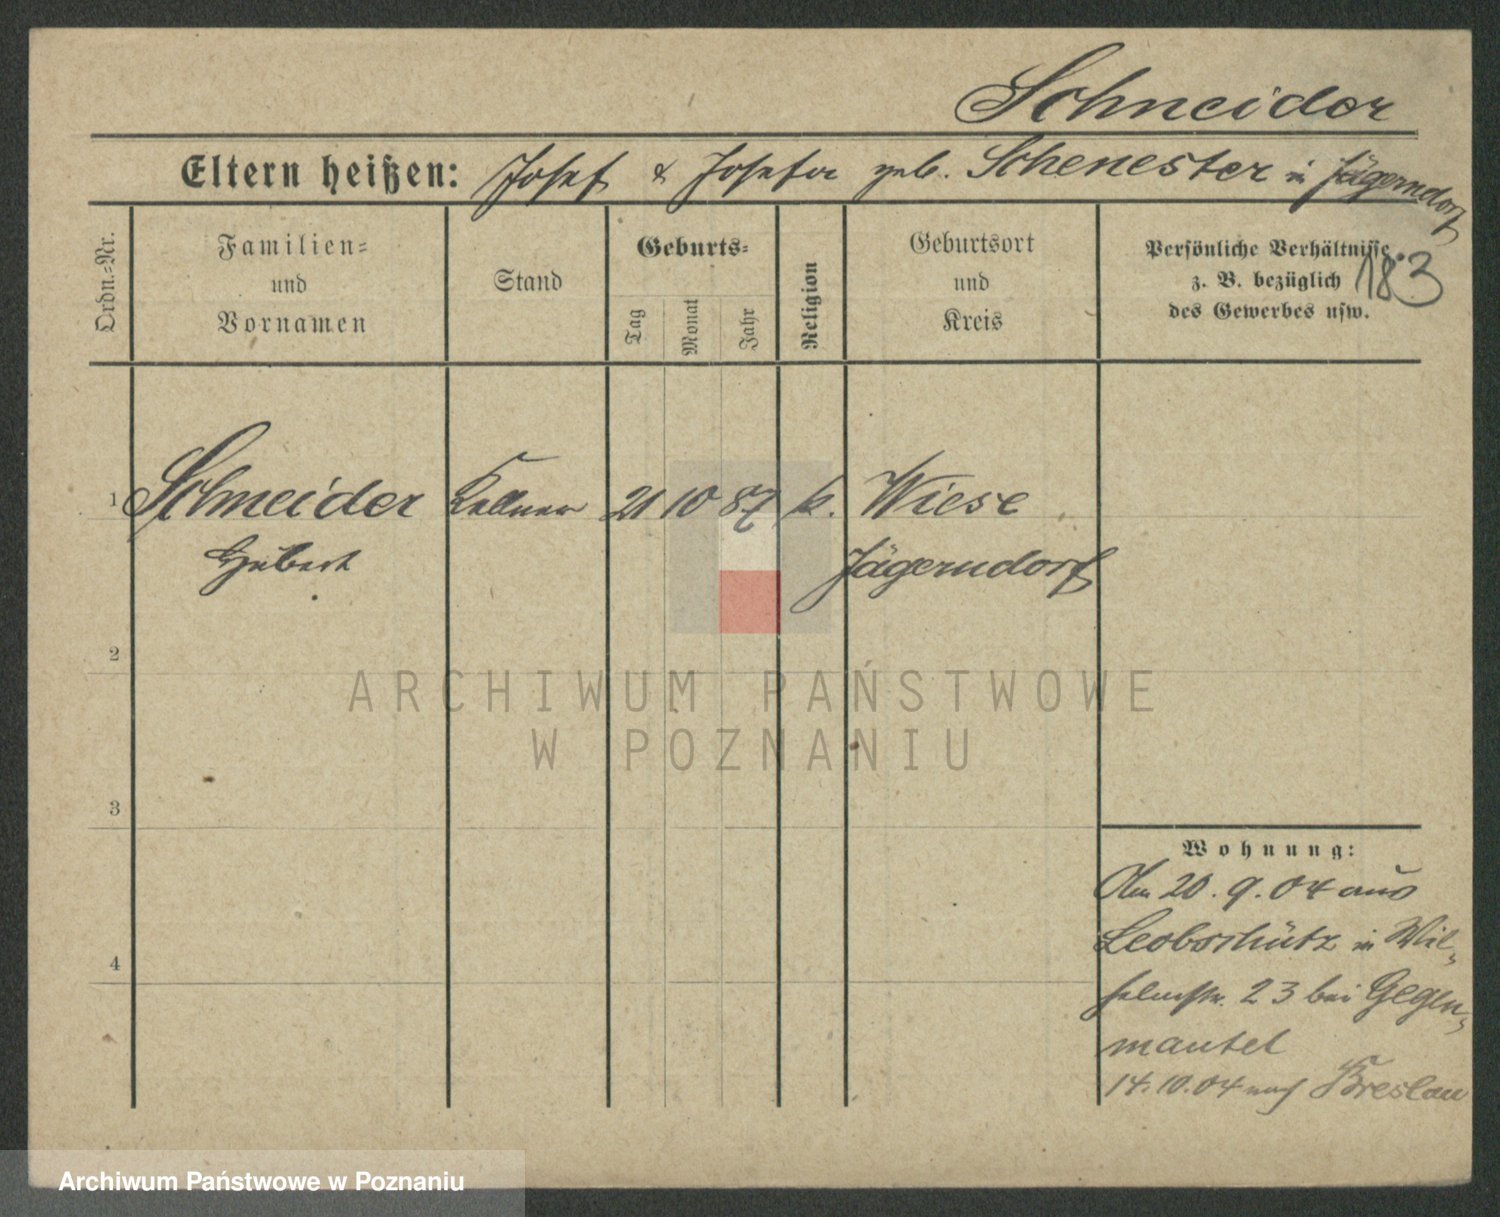 Schneider
Eltern heißen: Josef & Josefa geb. Schenester in Jägerndorf
183
Ordn.=Nr.
Familien=
und
Vornamen
Stand
Geburts=
Tag
Monat
Jahr
Religion
Geburtsort
und
Kreis
Persönliche Verhältnisse
z. B. bezüglich
des Gewerbes usw.
1 Schneider Kellner 21 10 87 k. Wiese
Hubert Jägerndorf
2
ARCHIWUM PAŃSTWOWE
W POZNANIU
3
Wohnung:
Am 20. 9. 04 aus
Leobschütz in Wil-
4
helmstr. 23 bei Gegen-
mantel
14. 10. 04 nach Breslau
Archiwum Państwowe w Poznaniu